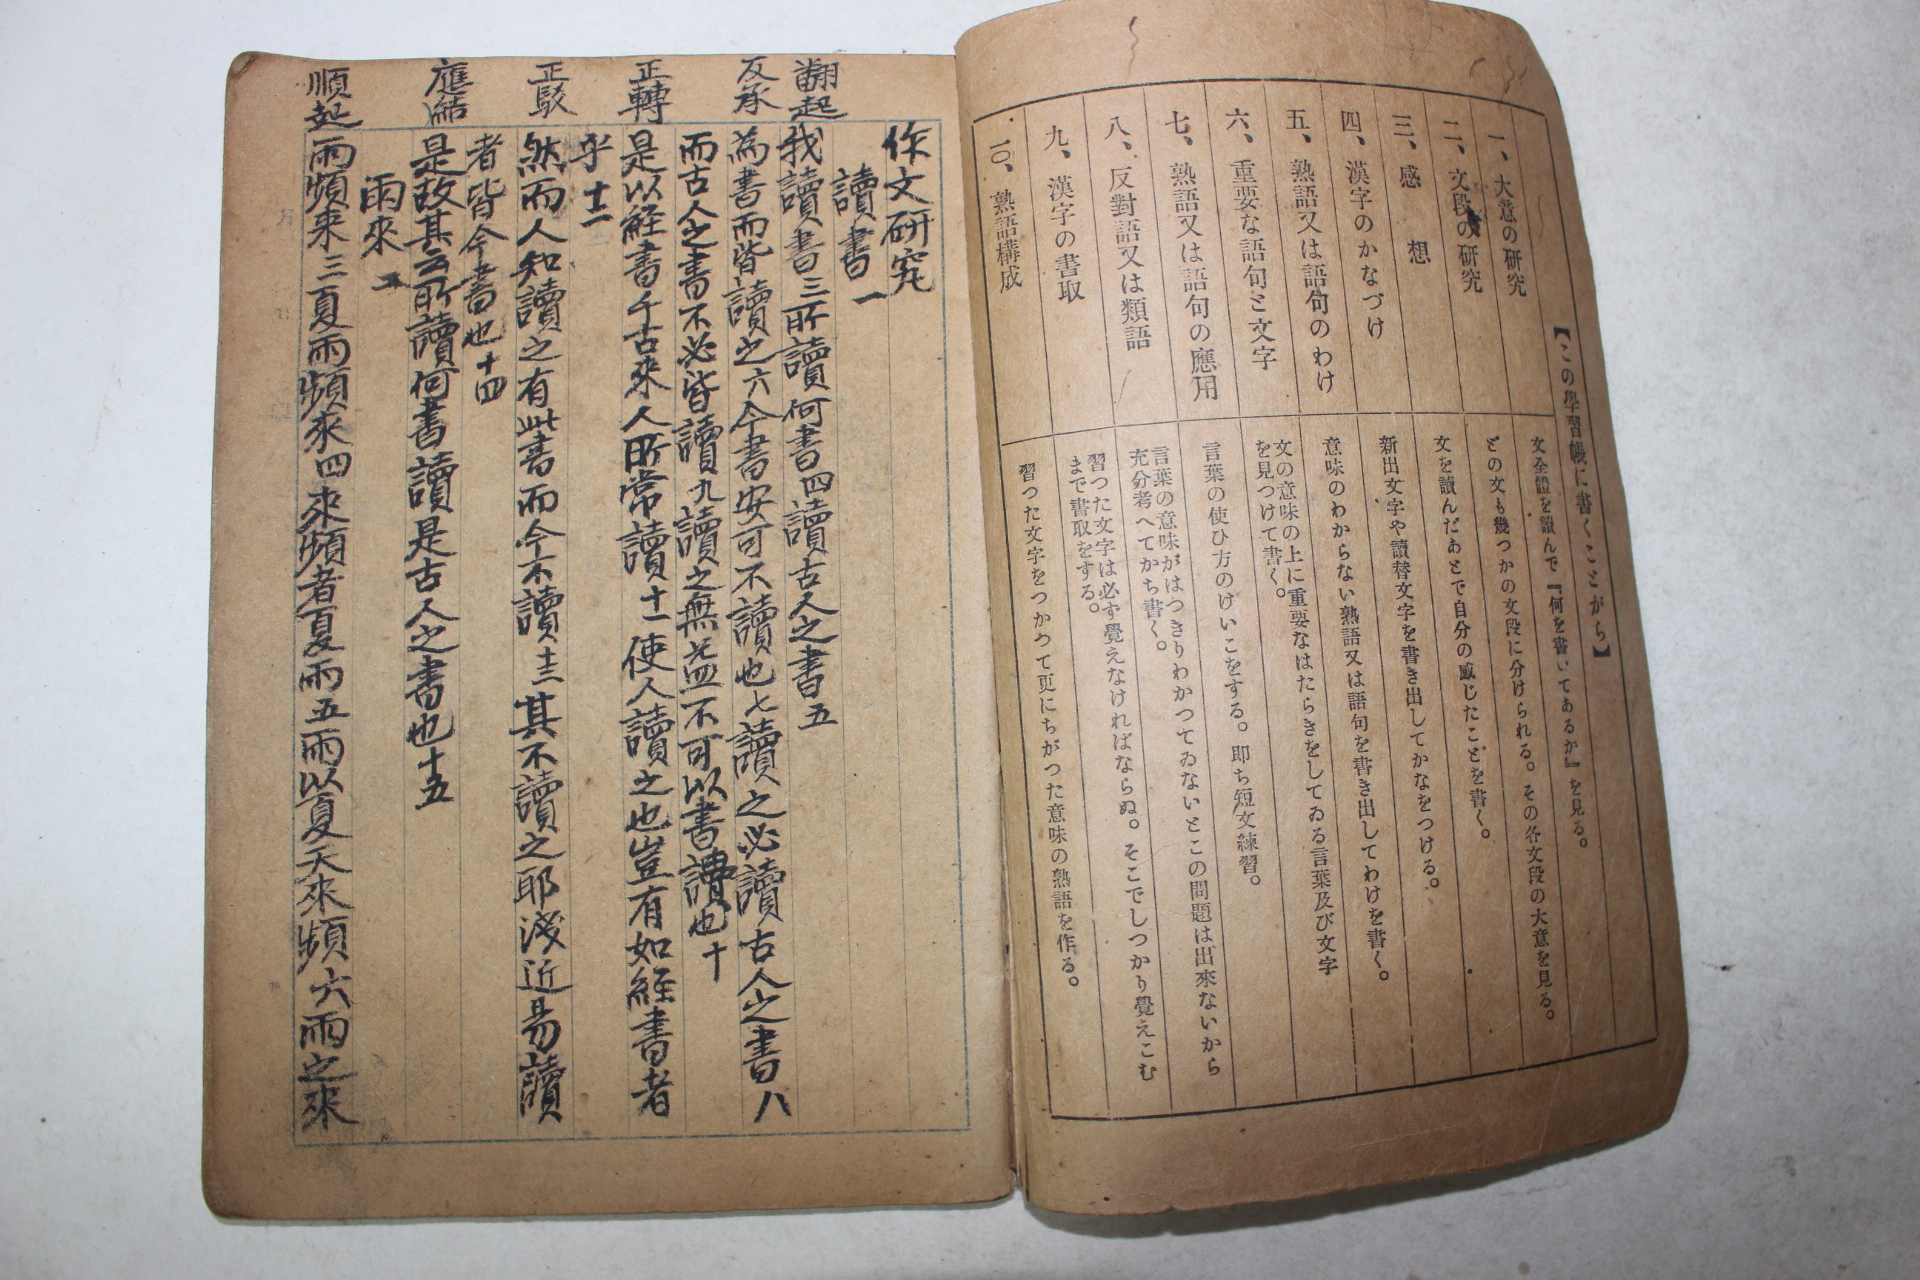 【この學習帳に書くことがら】
一、大意の研究
文全體を讀んで『何を書いてあるか』を見る。
二、文段の研究
どの文も幾つかの文段に分けられる。その各文段の大意を見る。
三、感想
文を讀んだあとで自分の感じたことを書く。
四、漢字のかなづけ
新出文字や讀替文字を書き出してかなをつける。
五、熟語又は語句のわけ
意味のわからない熟語又は語句を書き出してわけを書く。
六、重要な語句と文字
文の意味の上に重要なはたらきをしてゐる言葉及び文字
を見つけて書く。
七、熟語又は語句の應用
言葉の使ひ方のけいこをする。即ち短文練習。
八、反對語又は類語
言葉の意味がはつきりわかつてゐないとこの問題は出來ないから
充分考へてかち書く。
九、漢字の書取
習つた文字は必ず覺えなければならぬ。そこでしつかり覺えこむ
まで書取をする。
一〇、熟語構成
習つた文字をつかつて更にちがつた意味の熟語を作る。
作文研究
讀書一
翻起
我讀書三所讀何書四讀古人之書五
反承
為書而皆讀之六今書安可不讀也七讀之必讀古人之書八
而古人之書不必皆讀九讀之無益不可以書讀也十
正轉
是以經書千古來人所常讀十一使人讀之也豈有如經書者
乎十二
正駁
然而人知讀之有此書而今不讀十三其不讀之耶淺近易讀
者皆今書也十四
應結
是故其云所讀何書讀是古人之書也十五
雨來
順起
雨頻來三夏雨頻來四來頻者夏雨五雨以夏天來頻六雨之來